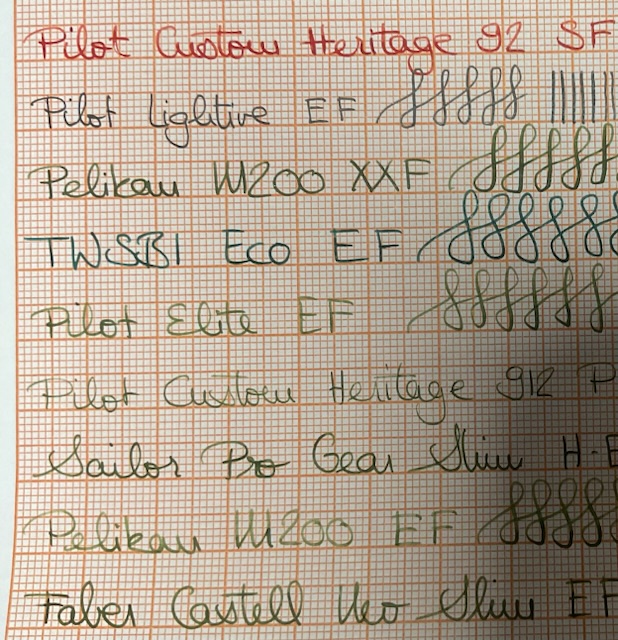 Pilot Custom Heritage 92 SF
Pilot Lightive EF
Pelikan M200 XXF
TWSBI Eco EF
Pilot Elite EF
Pilot Custom Heritage 912 P
Sailor Pro Gear Slim H-E
Pelikan M200 EF
Faber Castell Neo Slim EF